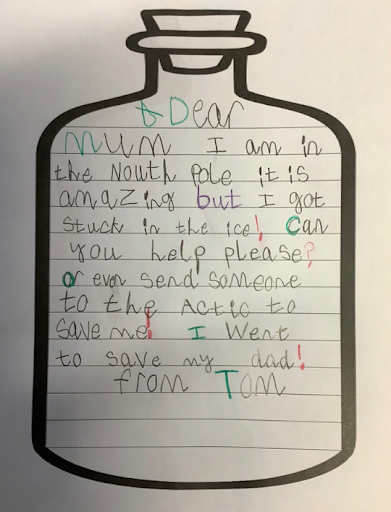 Dear
Mum I am in
the Nouth Pole it is
amazing but I got
stuck in the ice! Can
you help please?
or even send someone
to the Actic to
save me! I went
to save my dad!
from Tom